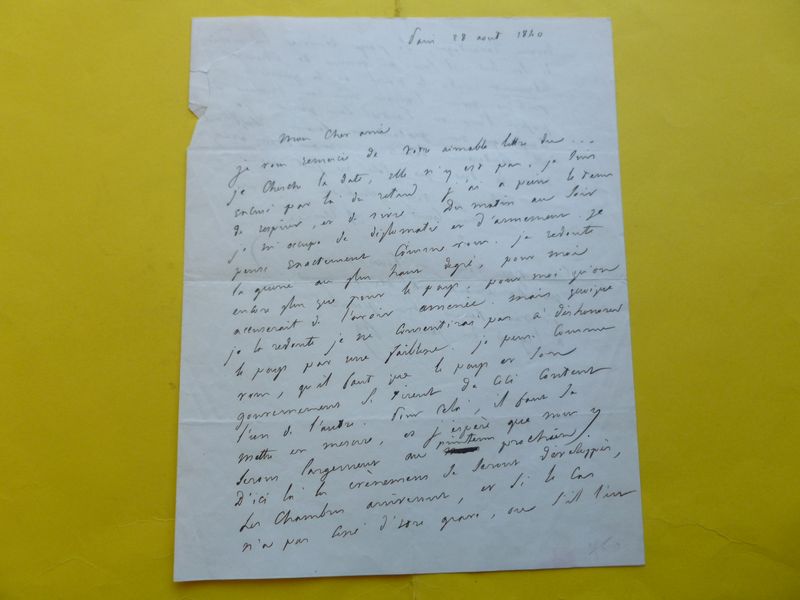 Paris 28 aout 1840
Mon Cher ami
je vous remercie de votre aimable lettre du ...
je cherche la date, elle n'y est pas. je suis
excusé par là du retard J'ai à peine le tems
de respirer, et de vivre. Du matin au soir
je m'occupe de diplomatie et d'armement. Je
pense exactement comme vous. je redoute
la guerre au plus haut degré, pour moi
encore plus que pour le pays, pour moi qu'on
accuserait de l'avoir amenée. mais quoique
je la redoute je ne consentirai pas à déshonorer
le pays par une faiblesse. je pense comme
vous, qu'il faut que le pays et son
gouvernement se tirent de ceci content
l'un de l'autre. Pour cela, il faut se
mettre en mesure, et j'espère que nous y
serons largement au printems prochain
D'ici là les évènemens se seront développés,
Les Chambres arriveront, et si le cas
n'a pas cessé d'être grave, ou s'il l'est